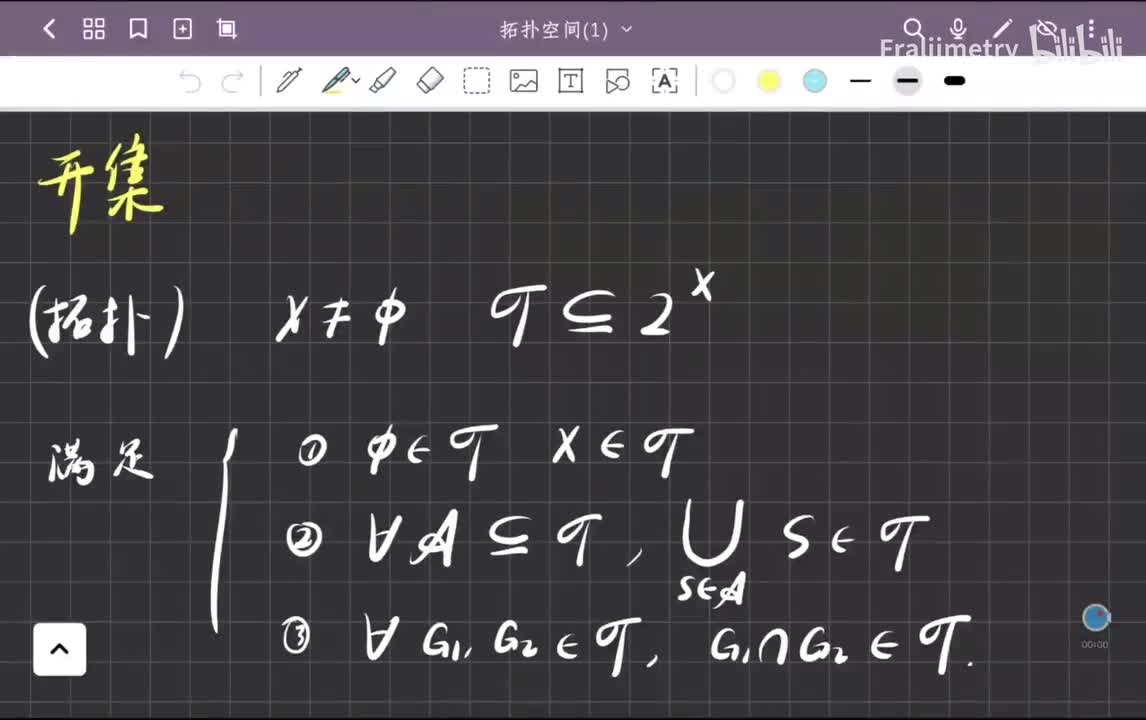 拓扑空间(1)
Fraljimetry bilibili
开集
(拓扑) X ≠ ϕ 𝒯 ⊆ 2^X
满足 ① ϕ ∈ 𝒯 X ∈ 𝒯
② ∀ 𝒜 ⊆ 𝒯, ⋃_{S∈𝒜} S ∈ 𝒯
③ ∀ G₁, G₂ ∈ 𝒯, G₁ ∩ G₂ ∈ 𝒯.
00:00